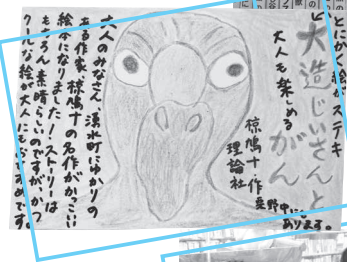 とにかく絵がステキ
大造じいさんと
がん
大人も楽しめる
椋鳩十 作
理論社
栗野中に
あります。
大人のみなさん、湧水町にゆかりの
ある作家 椋鳩十の名作がかっこいい
絵本になりました！ストーリーは
もちろん、素晴らしいのですが、かつ
クールな絵が大人にもおすすめです。